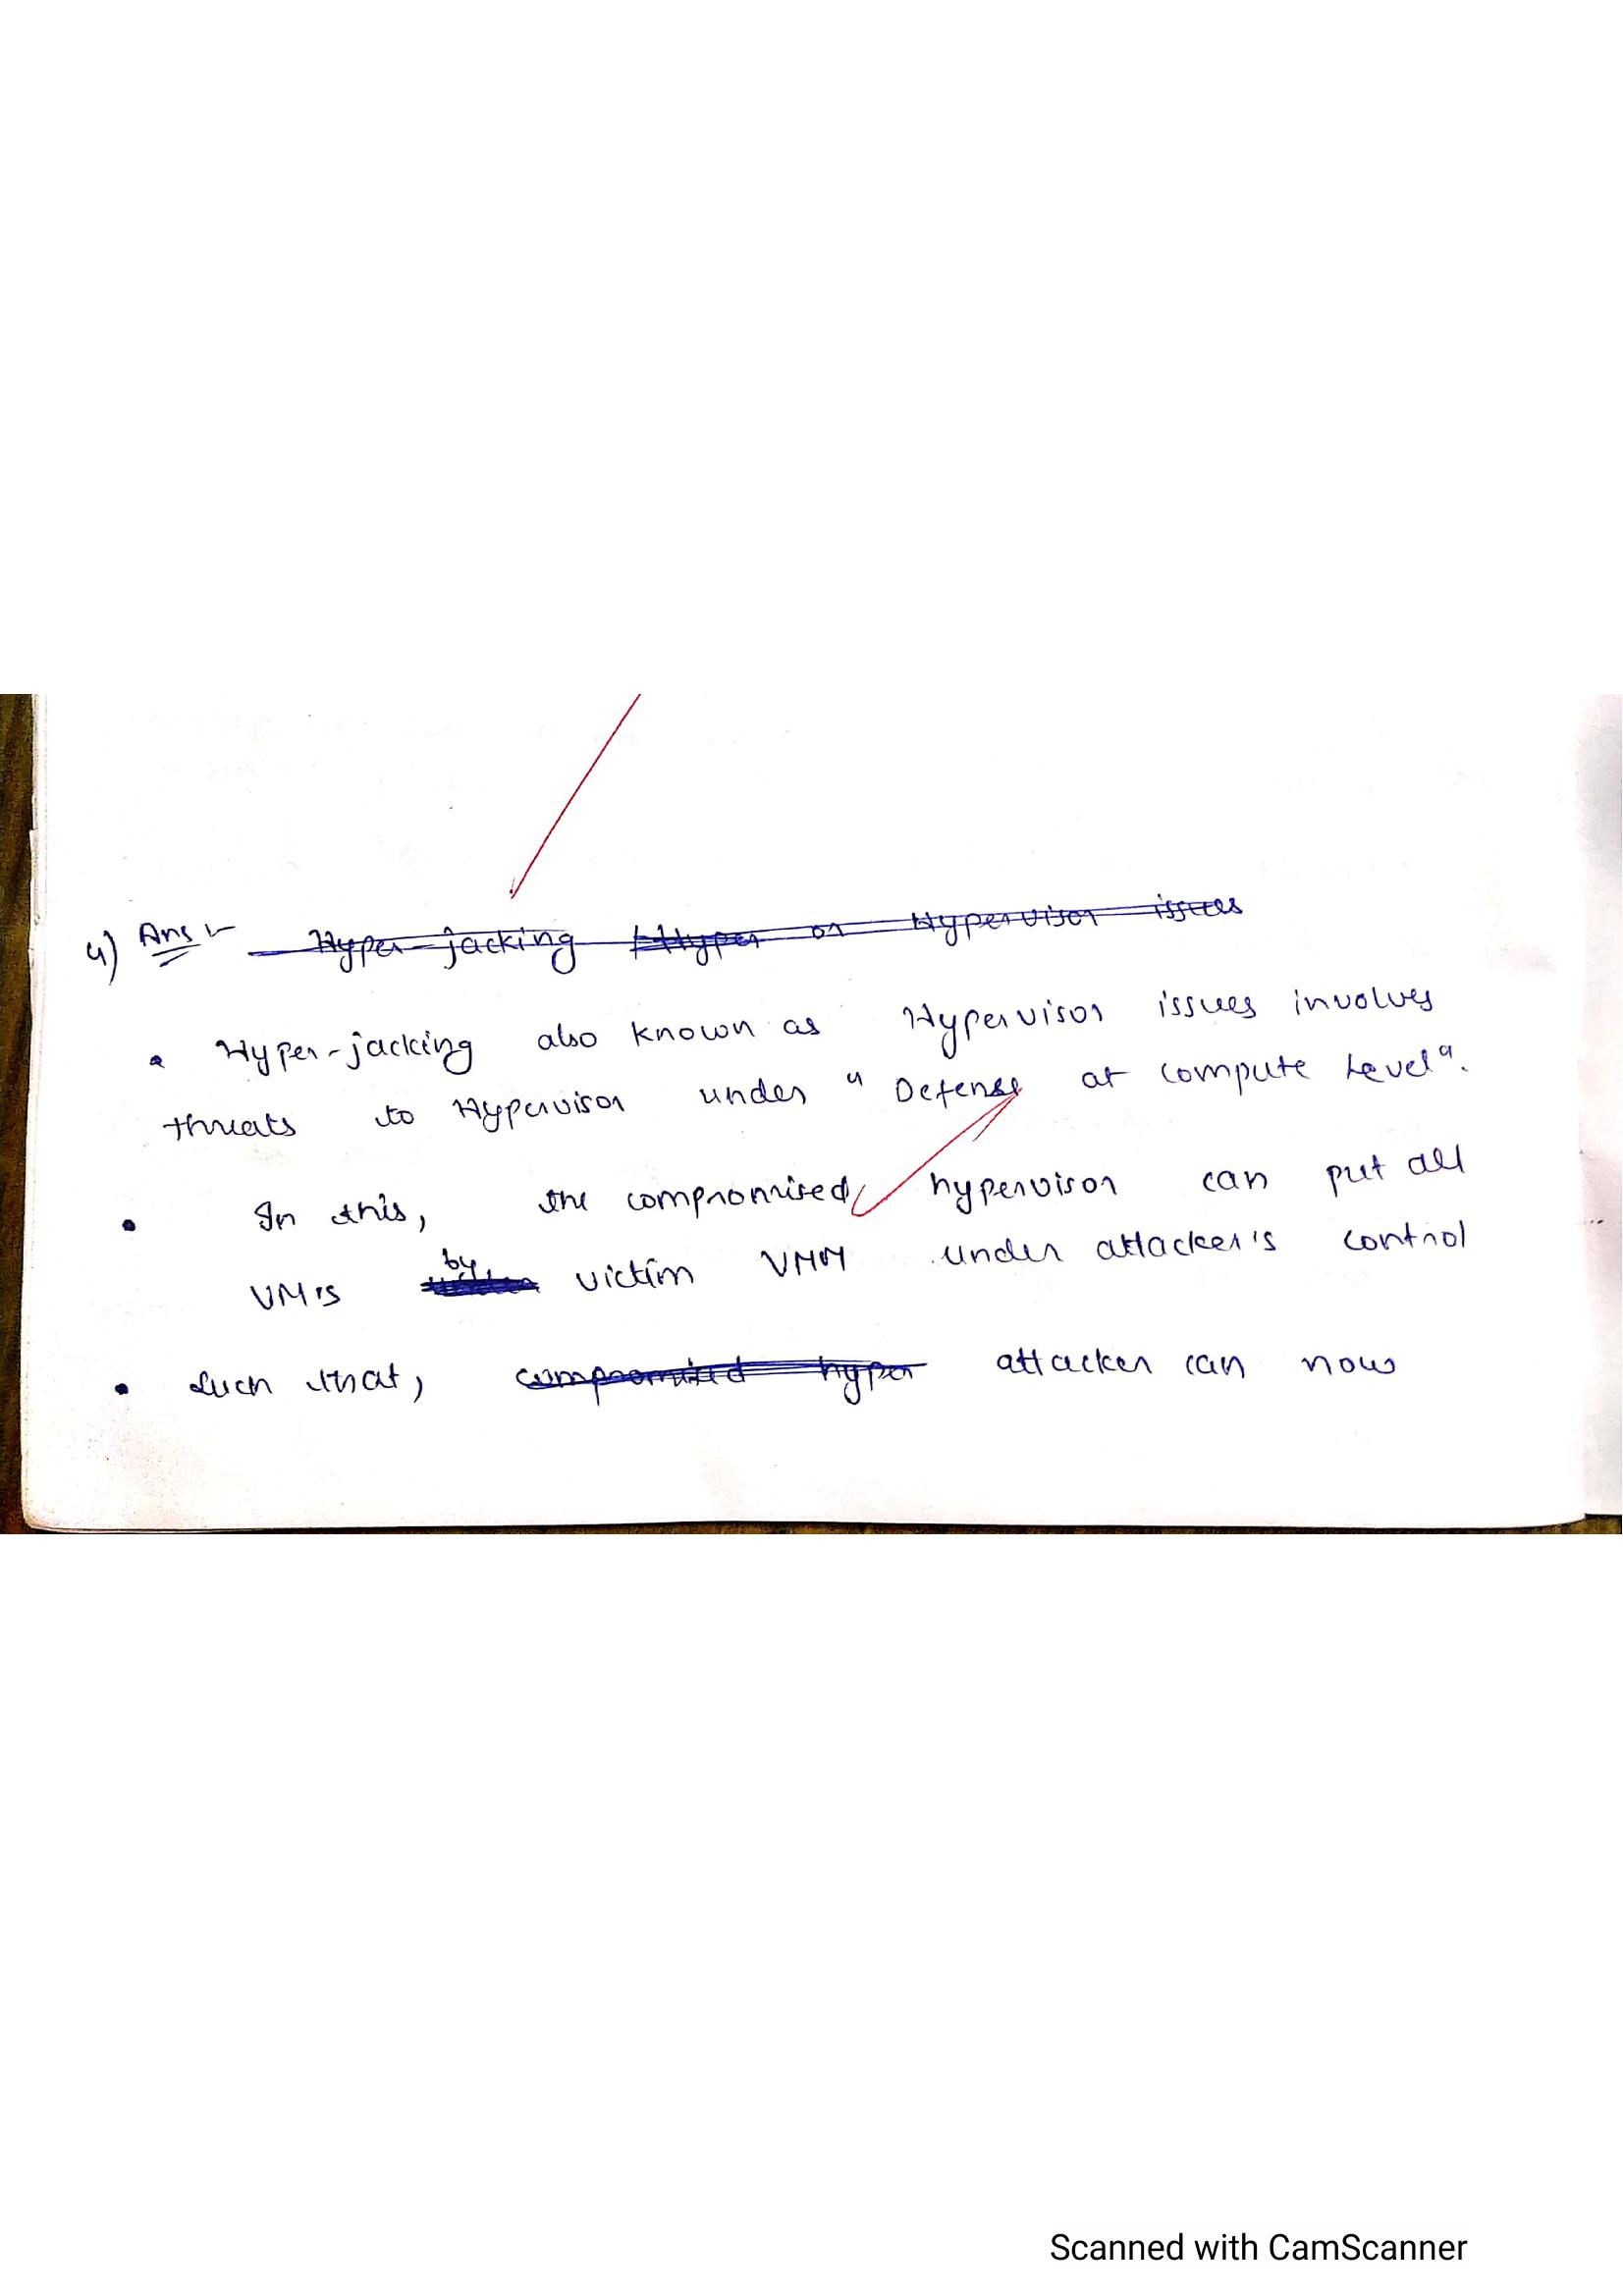 4) Ans :- Hyper-jacking Hyper or Hypervisor issues
• Hyper-jacking also known as Hypervisor issues involves
threats to Hypervisor under "Defense at compute Level".
• In this, the compromised hypervisor can put all
VM's by victim VMM under attacker's control
• Such that, compromised hyper attacker can now
Scanned with CamScanner